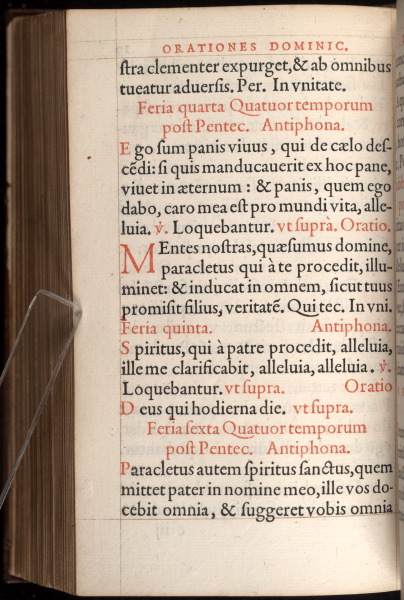 ORATIONES DOMINIC.
ſtra clementer expurget, & ab omnibus
tueatur aduerſis. Per. In vnitate.
Feria quarta Quatuor temporum
poſt Pentec. Antiphona.
Ego ſum panis viuus, qui de cælo deſ-
cẽdi: ſi quis manducauerit ex hoc pane,
viuet in æternum : & panis, quem ego
dabo, caro mea eſt pro mundi vita, alle-
luia. ℣. Loquebantur. vt ſuprà. Oratio.
MEntes noſtras, quæſumus domine,
paracletus qui à te procedit, illu-
minet: & inducat in omnem, ſicut tuus
promiſit filius, veritatẽ. Qui tec. In vni.
Feria quinta. Antiphona.
Spiritus, qui à patre procedit, alleluia,
ille me clarificabit, alleluia, alleluia. ℣.
Loquebantur. vt ſupra. Oratio
Deus qui hodierna die. vt ſupra.
Feria ſexta Quatuor temporum
poſt Pentec. Antiphona.
Paracletus autem ſpiritus ſanctus, quem
mittet pater in nomine meo, ille vos do-
cebit omnia, & ſuggeret vobis omnia